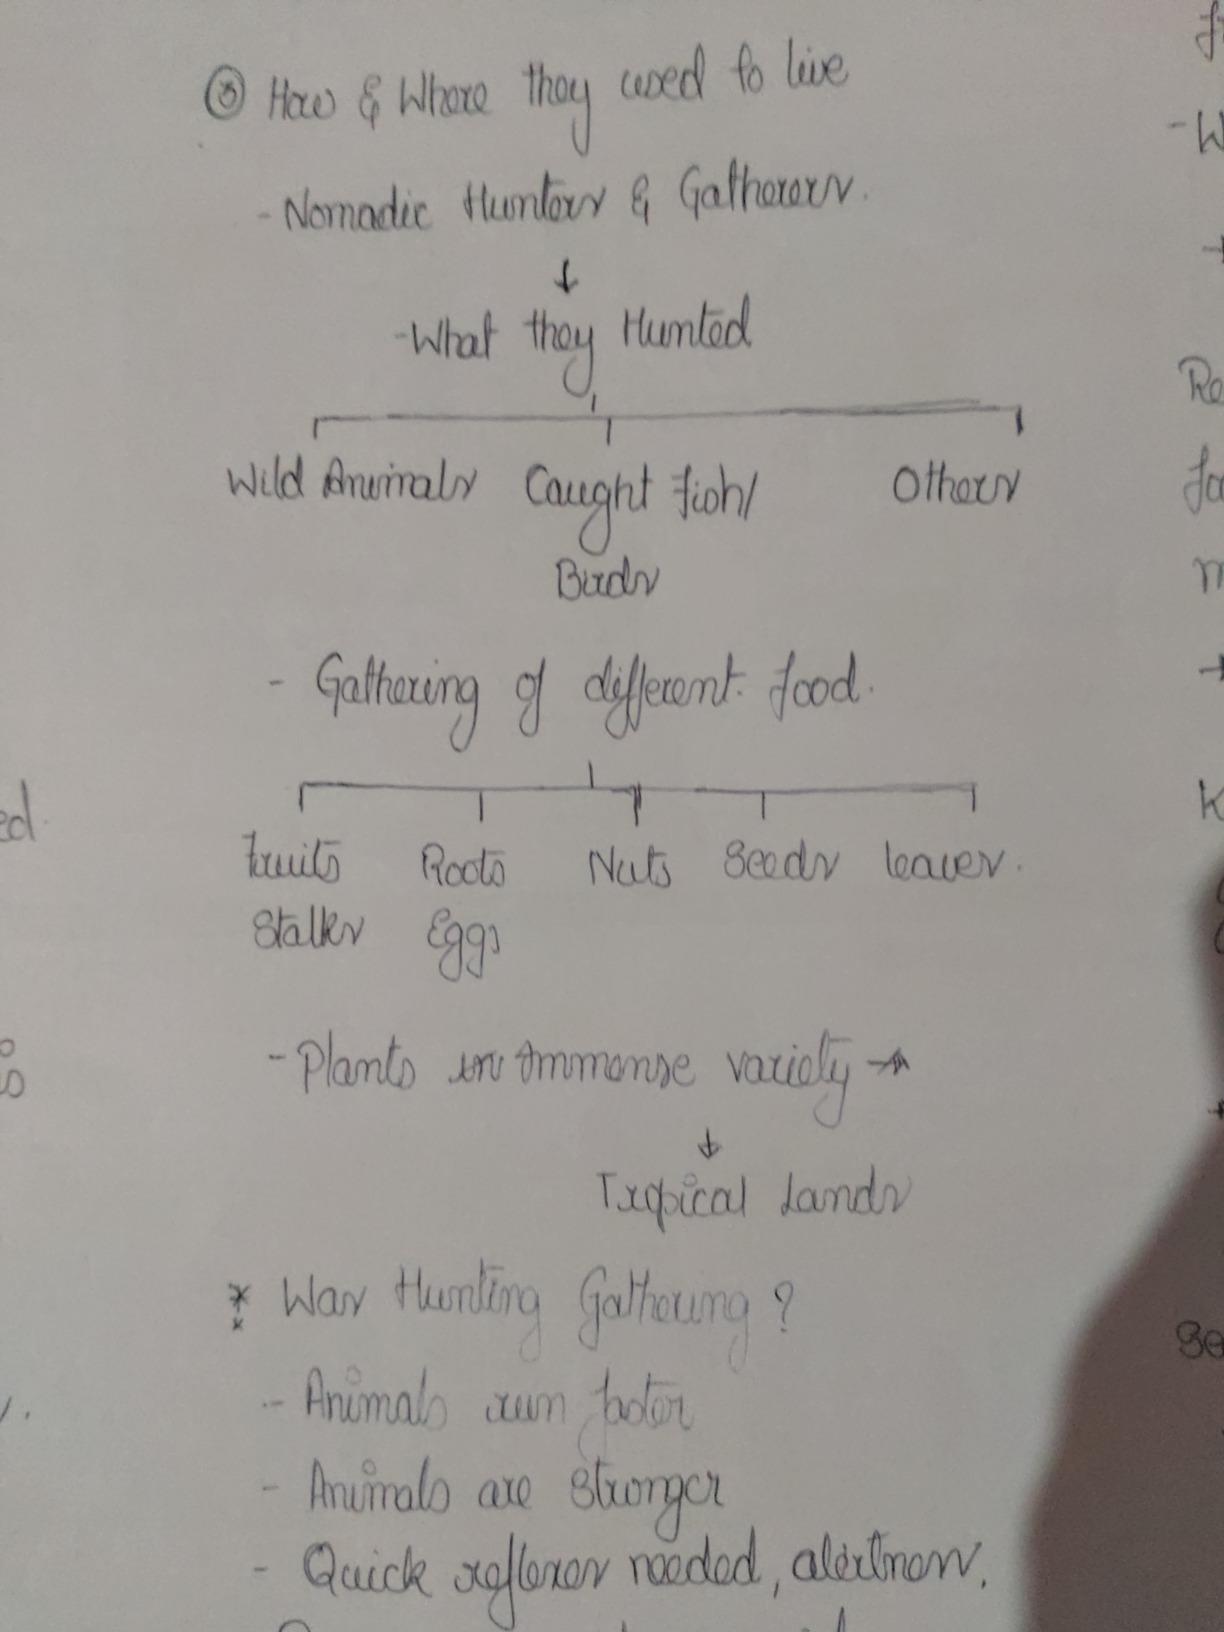 ③ How & Where they used to live
- Nomadic Hunters & Gatherers.
↓
- What they Hunted
Wild Animals Caught fish/ Others
Birds
- Gathering of different food.
Fruits Roots Nuts Seeds leaves.
Stalks Eggs
- Plants in Immense variety →
↓
Tropical Lands
* Was Hunting Gathering ?
- Animals run faster
- Animals are stronger
- Quick reflexes needed, alertness.